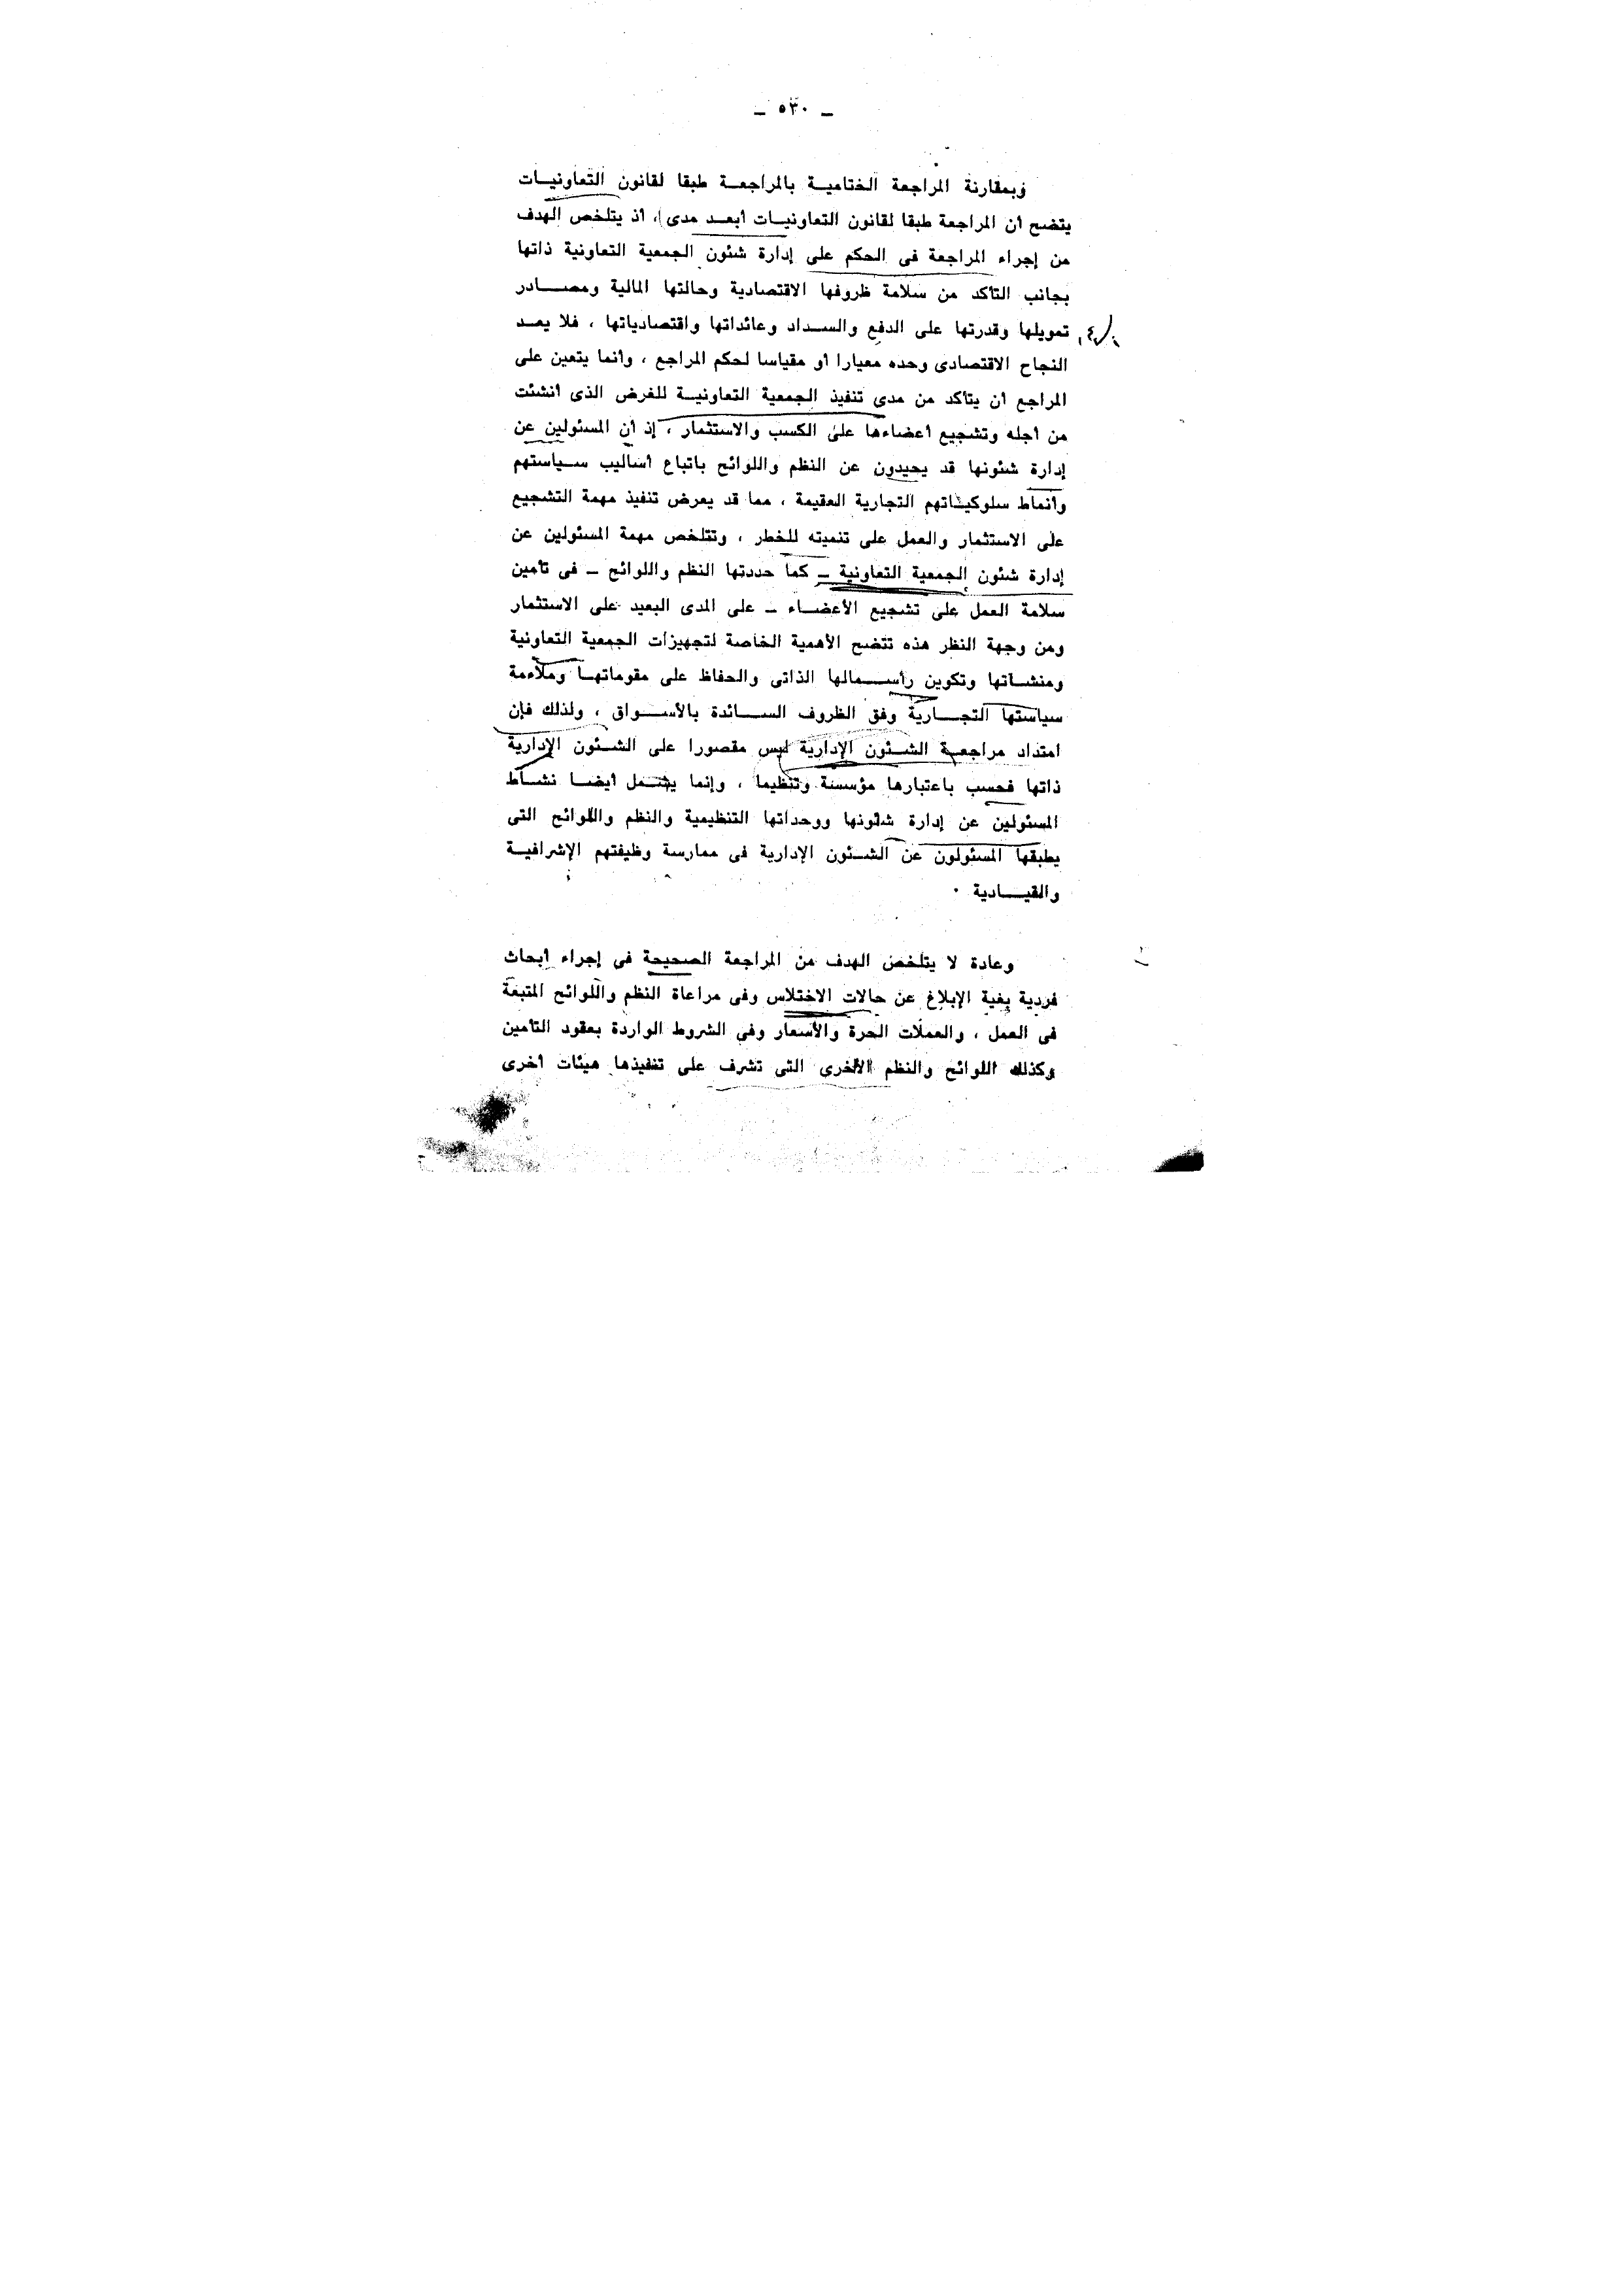 ـ ٥٣٠ ـ
وبمقارنة المراجعة الختامية بالمراجعة طبقا لقانون التعاونيات
يتضح أن المراجعة طبقا لقانون التعاونيات أبعد مدى ، اذ يتلخص الهدف
من إجراء المراجعة فى الحكم على إدارة شئون الجمعية التعاونية ذاتها
بجانب التأكد من سلامة ظروفها الاقتصادية وحالتها المالية ومصادر
تمويلها وقدرتها على الدفع والسداد وعائداتها واقتصادياتها ، فلا يعد
النجاح الاقتصادى وحده معيارا أو مقياسا لحكم المراجع ، وأنما يتعين على
المراجع أن يتأكد من مدى تنفيذ الجمعية التعاونية للغرض الذى أنشئت
من أجله وتشجيع أعضاءها على الكسب والاستثمار ، إذ أن المسئولين عن
إدارة شئونها قد يحيدون عن النظم واللوائح باتباع أساليب سياستهم
وأنماط سلوكياتهم التجارية العقيمة ، مما قد يعرض تنفيذ مهمة التشجيع
على الاستثمار والعمل على تنميته للخطر ، وتتلخص مهمة المسئولين عن
إدارة شئون الجمعية التعاونية ـ كما حددتها النظم واللوائح ـ فى تأمين
سلامة العمل على تشجيع الأعضاء ـ على المدى البعيد على الاستثمار
ومن وجهة النظر هذه تتضح الأهمية الخاصة لتجهيزات الجمعية التعاونية
ومنشاتها وتكوين رأسمالها الذاتى والحفاظ على مقوماتها وملاءمة
سياستها التجارية وفق الظروف السائدة بالأسواق ، ولذلك فإن
امتداد مراجعة الشئون الإدارية ليس مقصورا على الشئون الإدارية
ذاتها فحسب باعتبارها مؤسسة وتنظيما ، وإنما يشمل أيضا نشاط
المسئولين عن إدارة شئونها ووحداتها التنظيمية والنظم واللوائح التى
يطبقها المسئولون عن الشئون الإدارية فى ممارسة وظيفتهم الإشرافية
والقيادية ٠
وعادة لا يتلخص الهدف من المراجعة الصحيحة فى إجراء أبحاث
فردية بغية الإبلاغ عن حالات الاختلاس وفى مراعاة النظم واللوائح المتبعة
فى العمل ، والعملات الحرة والأسعار وفى الشروط الواردة بعقود التأمين
وكذلك اللوائح والنظم الأخرى التى تشرف على تنفيذها هيئات أخرى